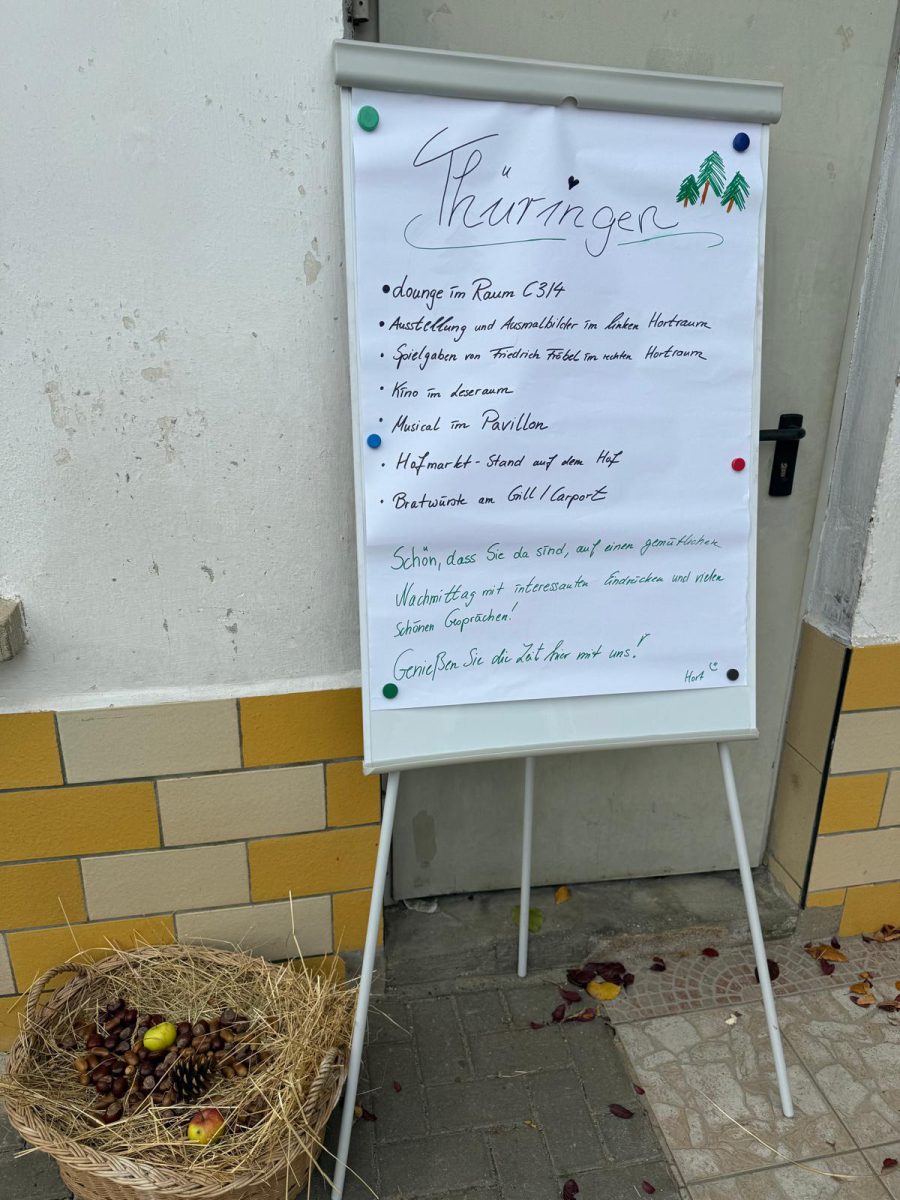 Thüringen
• Lounge im Raum C3/4
• Ausstellung und Ausmalbilder im linken Hortraum
• Spielgaben von Friedrich Fröbel im rechten Hortraum
• Kino im Leseraum
• Musical im Pavillon
• Hofmarkt-Stand auf dem Hof
• Bratwürste am Grill/Carport
Schön, dass Sie da sind, auf einen gemütlichen
Nachmittag mit interessanten Eindrücken und vielen
schönen Gesprächen!
Genießen Sie die Zeit hier mit uns!
Hort